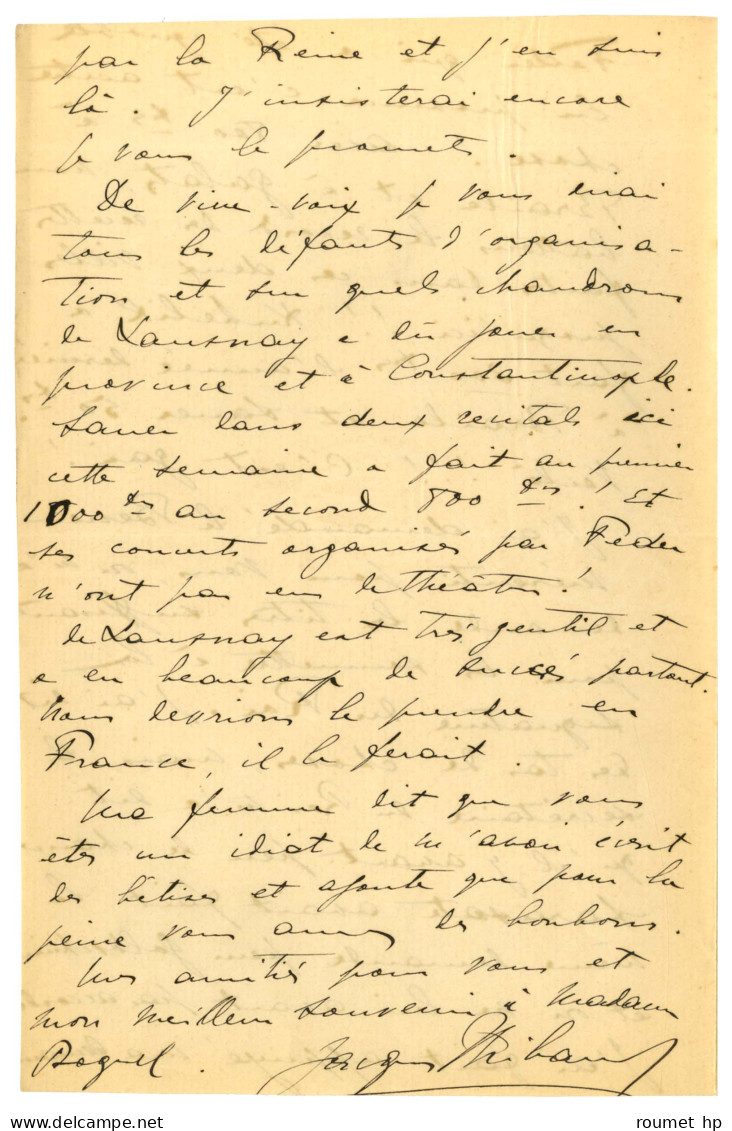 par la Reine et j'en suis
là. J'insisterai encore
je vous le promets.
De vive-voix je vous dirai
tous les défauts d'organisa-
tion et sur quels chaudrons
de Lausnay a dû jouer en
province et à Constantinople.
Sauer dans deux recitals ici
cette semaine a fait au premier
1000 frs au second 800 frs! Et
ses concerts organisés par Feder
n'ont pas eu le théâtre!
de Lausnay est très gentil et
a eu beaucoup de succès partout.
Nous devrions le prendre en
France, il le ferait.
Ma femme dit que vous
êtes un idiot de m'avoir écrit
des bêtises et ajoute que pour la
peine vous aurez des bonbons.
Mes amitiés pour vous et
mon meilleur souvenir à Madame
Boquel. Jacques Thibaud
roumet hp